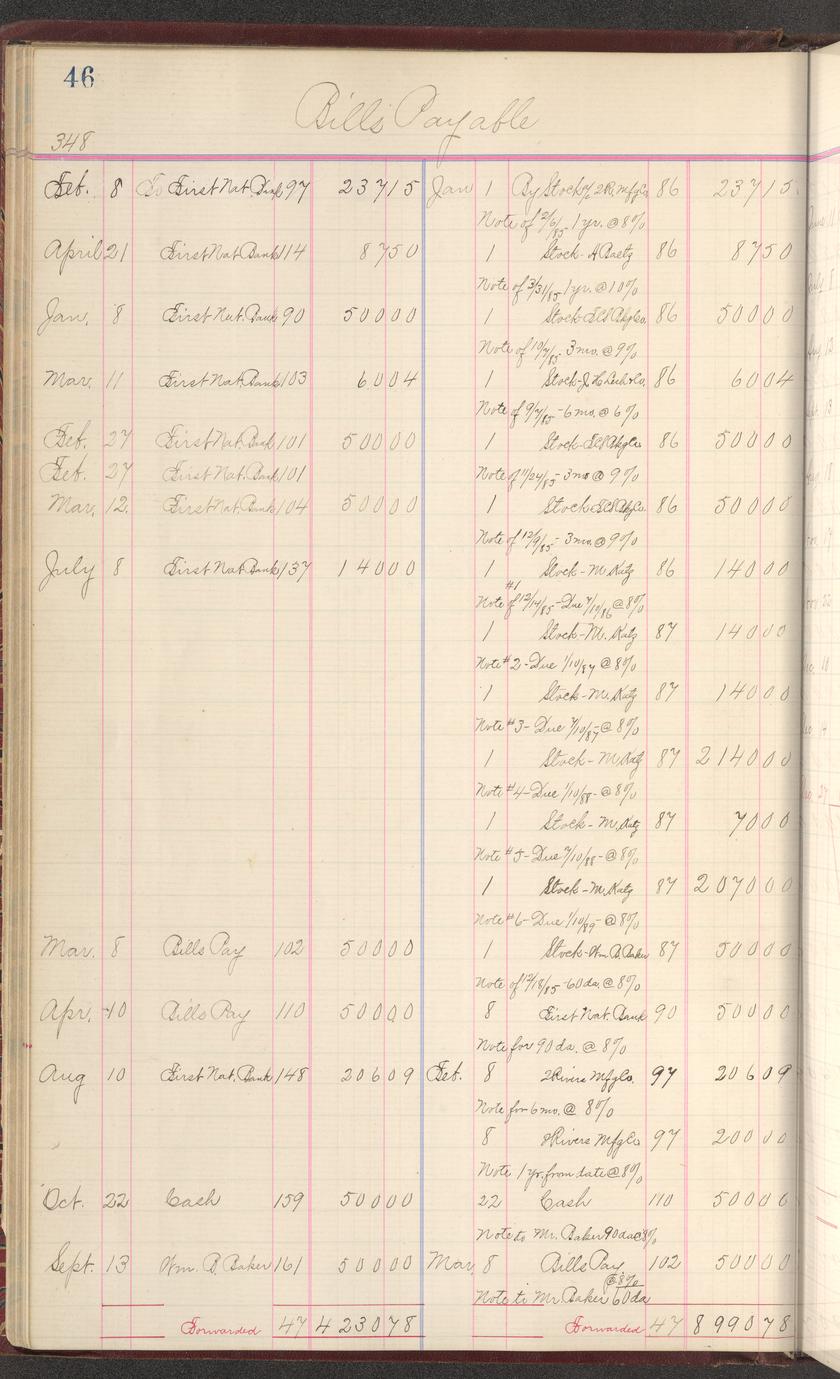 46
Bills Payable
348
Feb. 8 To First Nat. Bank 97 237 15 Jan 1 By Stock 2R. Mfg Co 86 237 15
Note of 2/6/85 - 1 yr. @ 8%
April 21 First Nat Bank 114 87 50 1 Stock - A Baetz 86 87 50
Note of 3/31/85 - 1 yr. @ 10%
Jan. 8 First Nat. Bank 90 500 00 1 Stock 86 500 00
Note of 10/7/85 - 3 mo. @ 9%
Mar. 11 First Nat. Bank 103 60 04 1 Stock - J. H. Co. 86 60 04
Note of 9/7/85 - 6 mo. @ 6%
Feb. 27 First Nat. Bank 101 500 00 1 Stock 86 500 00
Feb. 27 First Nat. Bank 101 Note of 11/24/85 - 3 mo @ 9%
Mar. 12. First Nat. Bank 104 500 00 1 Stock 86 500 00
Note of 12/9/85 - 3 mo. @ 9%
July 8 First Nat Bank 137 140 00 1 Stock - M. Katz 86 140 00
#1
Note of 12/14/85 - Due 7/10/86 @ 8%
1 Stock - M. Katz 87 140 00
Note #2 - Due 1/10/87 @ 8%
1 Stock - M. Katz 87 140 00
Note #3 - Due 7/10/87 - @ 8%
1 Stock - M Katz 87 2140 00
Note #4 - Due 1/10/88 - @ 8%
1 Stock - M. Katz 87 70 00
Note #5 - Due 7/10/88 - @ 8%
1 Stock - M. Katz 87 2070 00
Note #6 - Due 1/10/89 - @ 8%
Mar. 8 Bills Pay 102 500 00 1 Stock - Wm. B. Baker 87 500 00
Note of 12/18/85 - 60 da. @ 8%
Apr. 10 Bills Pay 110 500 00 8 First Nat. Bank 90 500 00
Note for 90 da. @ 8%
Aug 10 First Nat. Bank 148 206 09 Feb. 8 2 Rivers Mfg Co. 97 206 09
Note for 6 mo. @ 8%
8 2 Rivers Mfg Co 97 200 00
Note 1 yr. from date @ 8%
Oct. 22 Cash 159 500 00 22 Cash 110 500 00
Note to Mr. Baker 90 da @ 8%
Sept. 13 Wm. B. Baker 161 500 00 Mar. 8 Bills Pay 102 500 00
@ 8%
Note to Mr Baker 60 da
Forwarded 47 4230 78 Forwarded 47 8990 78